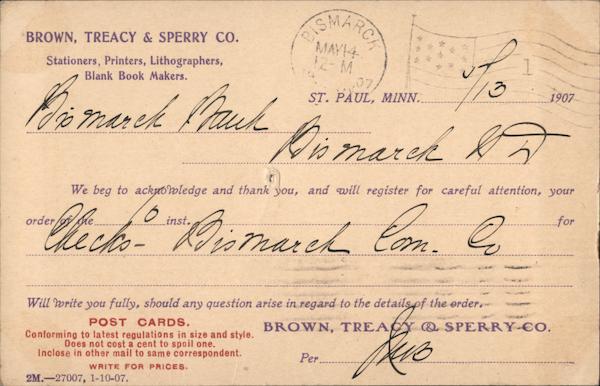 BROWN, TREACY & SPERRY CO.
Stationers, Printers, Lithographers,
Blank Book Makers.
BISMARCK
MAY 14
12-M
1
ST. PAUL, MINN. 5/13 1907
Bismarck Bank
Bismarck N D
We beg to acknowledge and thank you, and will register for careful attention, your
order of the 10 inst. for
Checks - Bismarck Com. Co
Will write you fully, should any question arise in regard to the details of the order.
POST CARDS.
Conforming to latest regulations in size and style.
Does not cost a cent to spoil one.
Inclose in other mail to same correspondent.
WRITE FOR PRICES.
BROWN, TREACY & SPERRY CO.
Per
2M.—27007, 1-10-07.